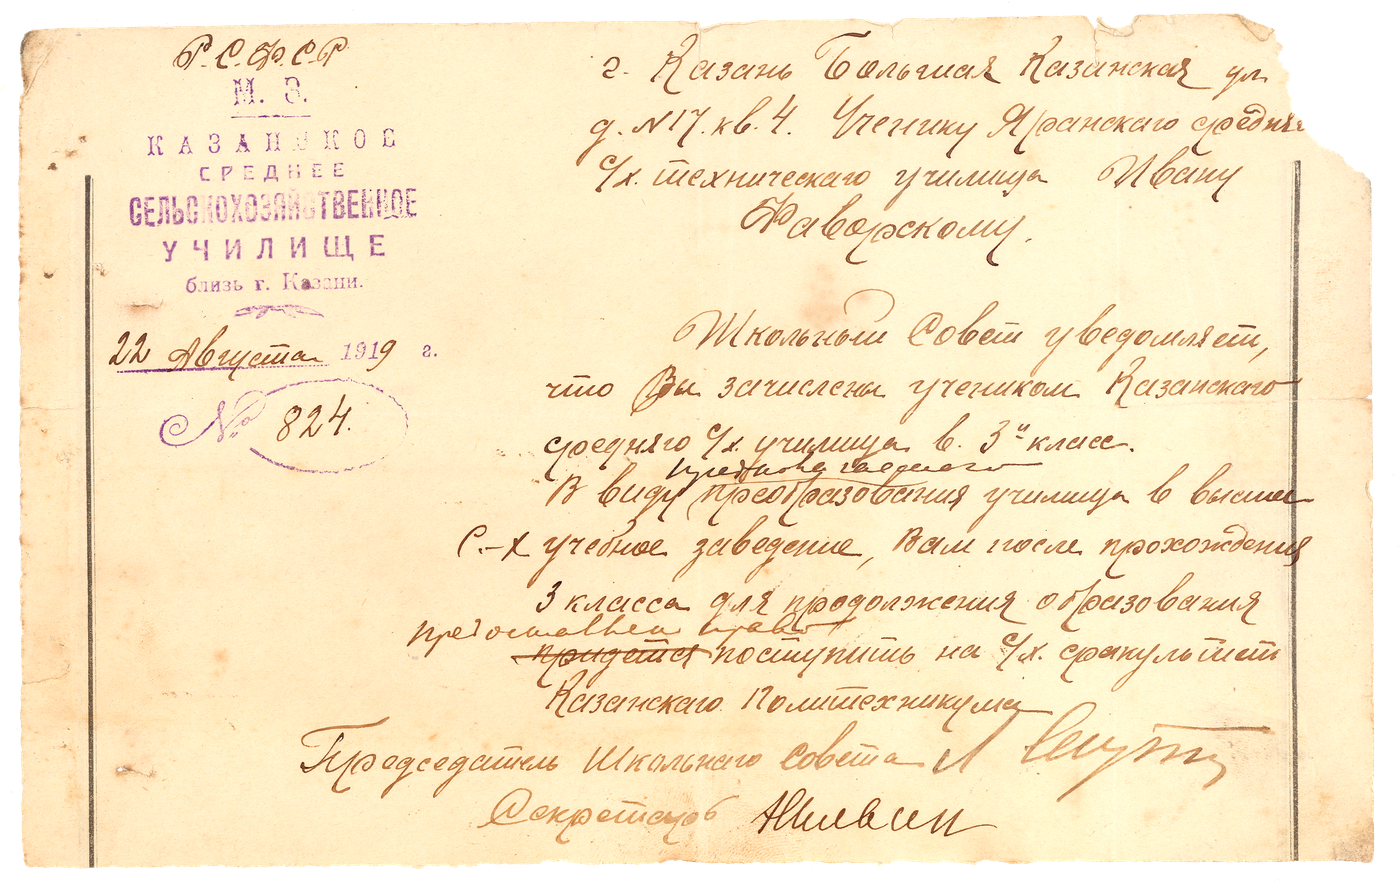 Р.С.Ф.С.Р
М. З.
КАЗАНСКОЕ
СРЕДНЕЕ
СЕЛЬСКОХОЗЯЙСТВЕННОЕ
УЧИЛИЩЕ
близь г. Казани.
22 Августа 1919 г.
№ 824.
г. Казань Большая Казанская ул
д. №17. кв. 4. Ученику Яранскаго средняго
с/х. техническаго училища Ивану
Фаворскому.
Школьный Совет уведомляет,
что Вы зачислены учеником Казанскаго
средняго с/х. училища в. 3й класс.
предполагаемого
В виду преобразования училища в высшее
С.-Х учебное заведение, Вам после прохождения
3 класса для продолжения образования
предоставлен право
придется поступить на с/х. факультет
Казанскаго Политехникума
Председатель Школьнаго Совета
Секретарь